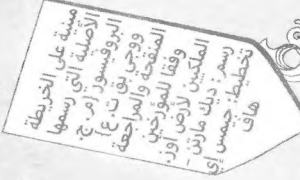 مبنية على الخريطة
الأصلية التي رسمها
البروفسور (م. ج.
ووجي بق ت.ع)
المنقحة والمراجعة
وفقا للمؤرخين
الملكيين لأرض أوز.
رسم: ديك مارتن -
تخطيط: جيمس إي
هاف